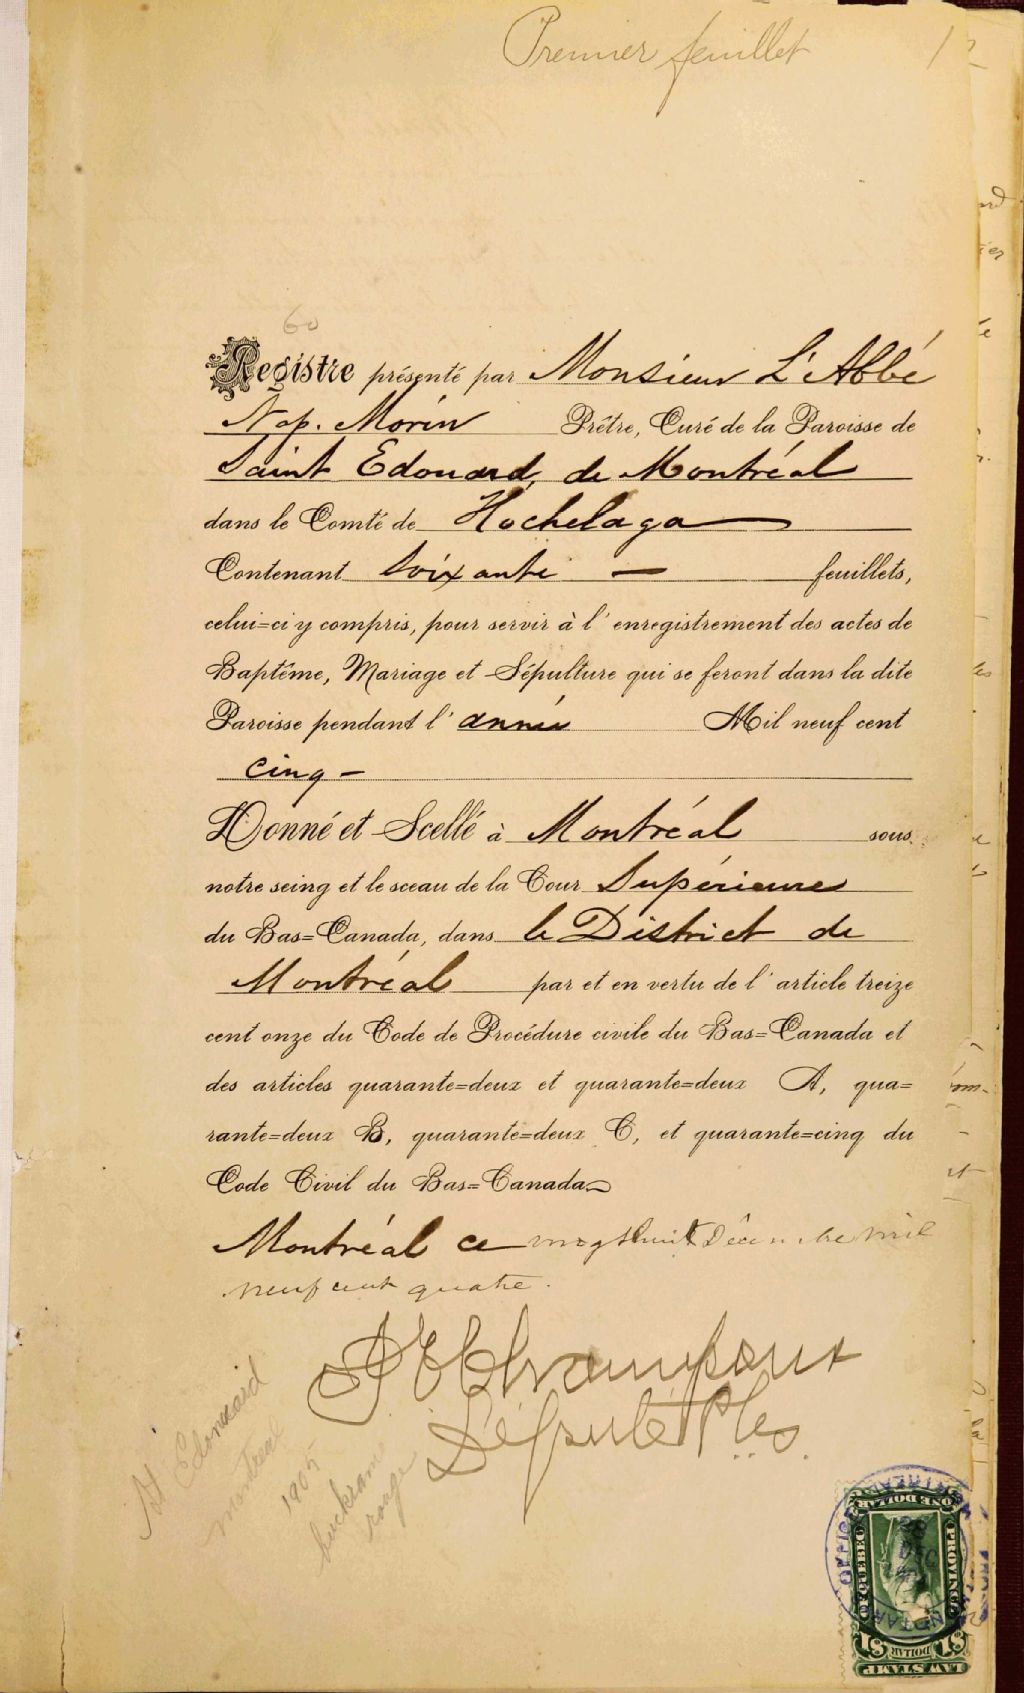 Premier feuillet
60
Registre présenté par Monsieur L'Abbé
Nap. Morin Prêtre, Curé de la Paroisse de
Saint Edouard, de Montréal
dans le Comté de Hochelaga
Contenant soixante — feuillets,
celui=ci y compris, pour servir à l'enregistrement des actes de
Baptême, Mariage et Sépulture qui se feront dans la dite
Paroisse pendant l'année Mil neuf cent
cinq -
Donné et Scellé à Montréal sous
notre seing et le sceau de la Cour Supérieure
du Bas=Canada, dans le District de
Montréal par et en vertu de l'article treize
cent onze du Code de Procédure civile du Bas=Canada et
des articles quarante=deux et quarante=deux A, qua=
rante=deux B, quarante=deux C, et quarante=cinq du
Code Civil du Bas=Canada
Montréal ce vingthuit Décembre mil
neuf cent quatre.
Député P
St Edouard
Montreal
1905
buckram
rouge
ONE DOLLAR
PROVINCE
QUEBEC
28
DEC
$1 DOLLAR $1
LAW STAMP